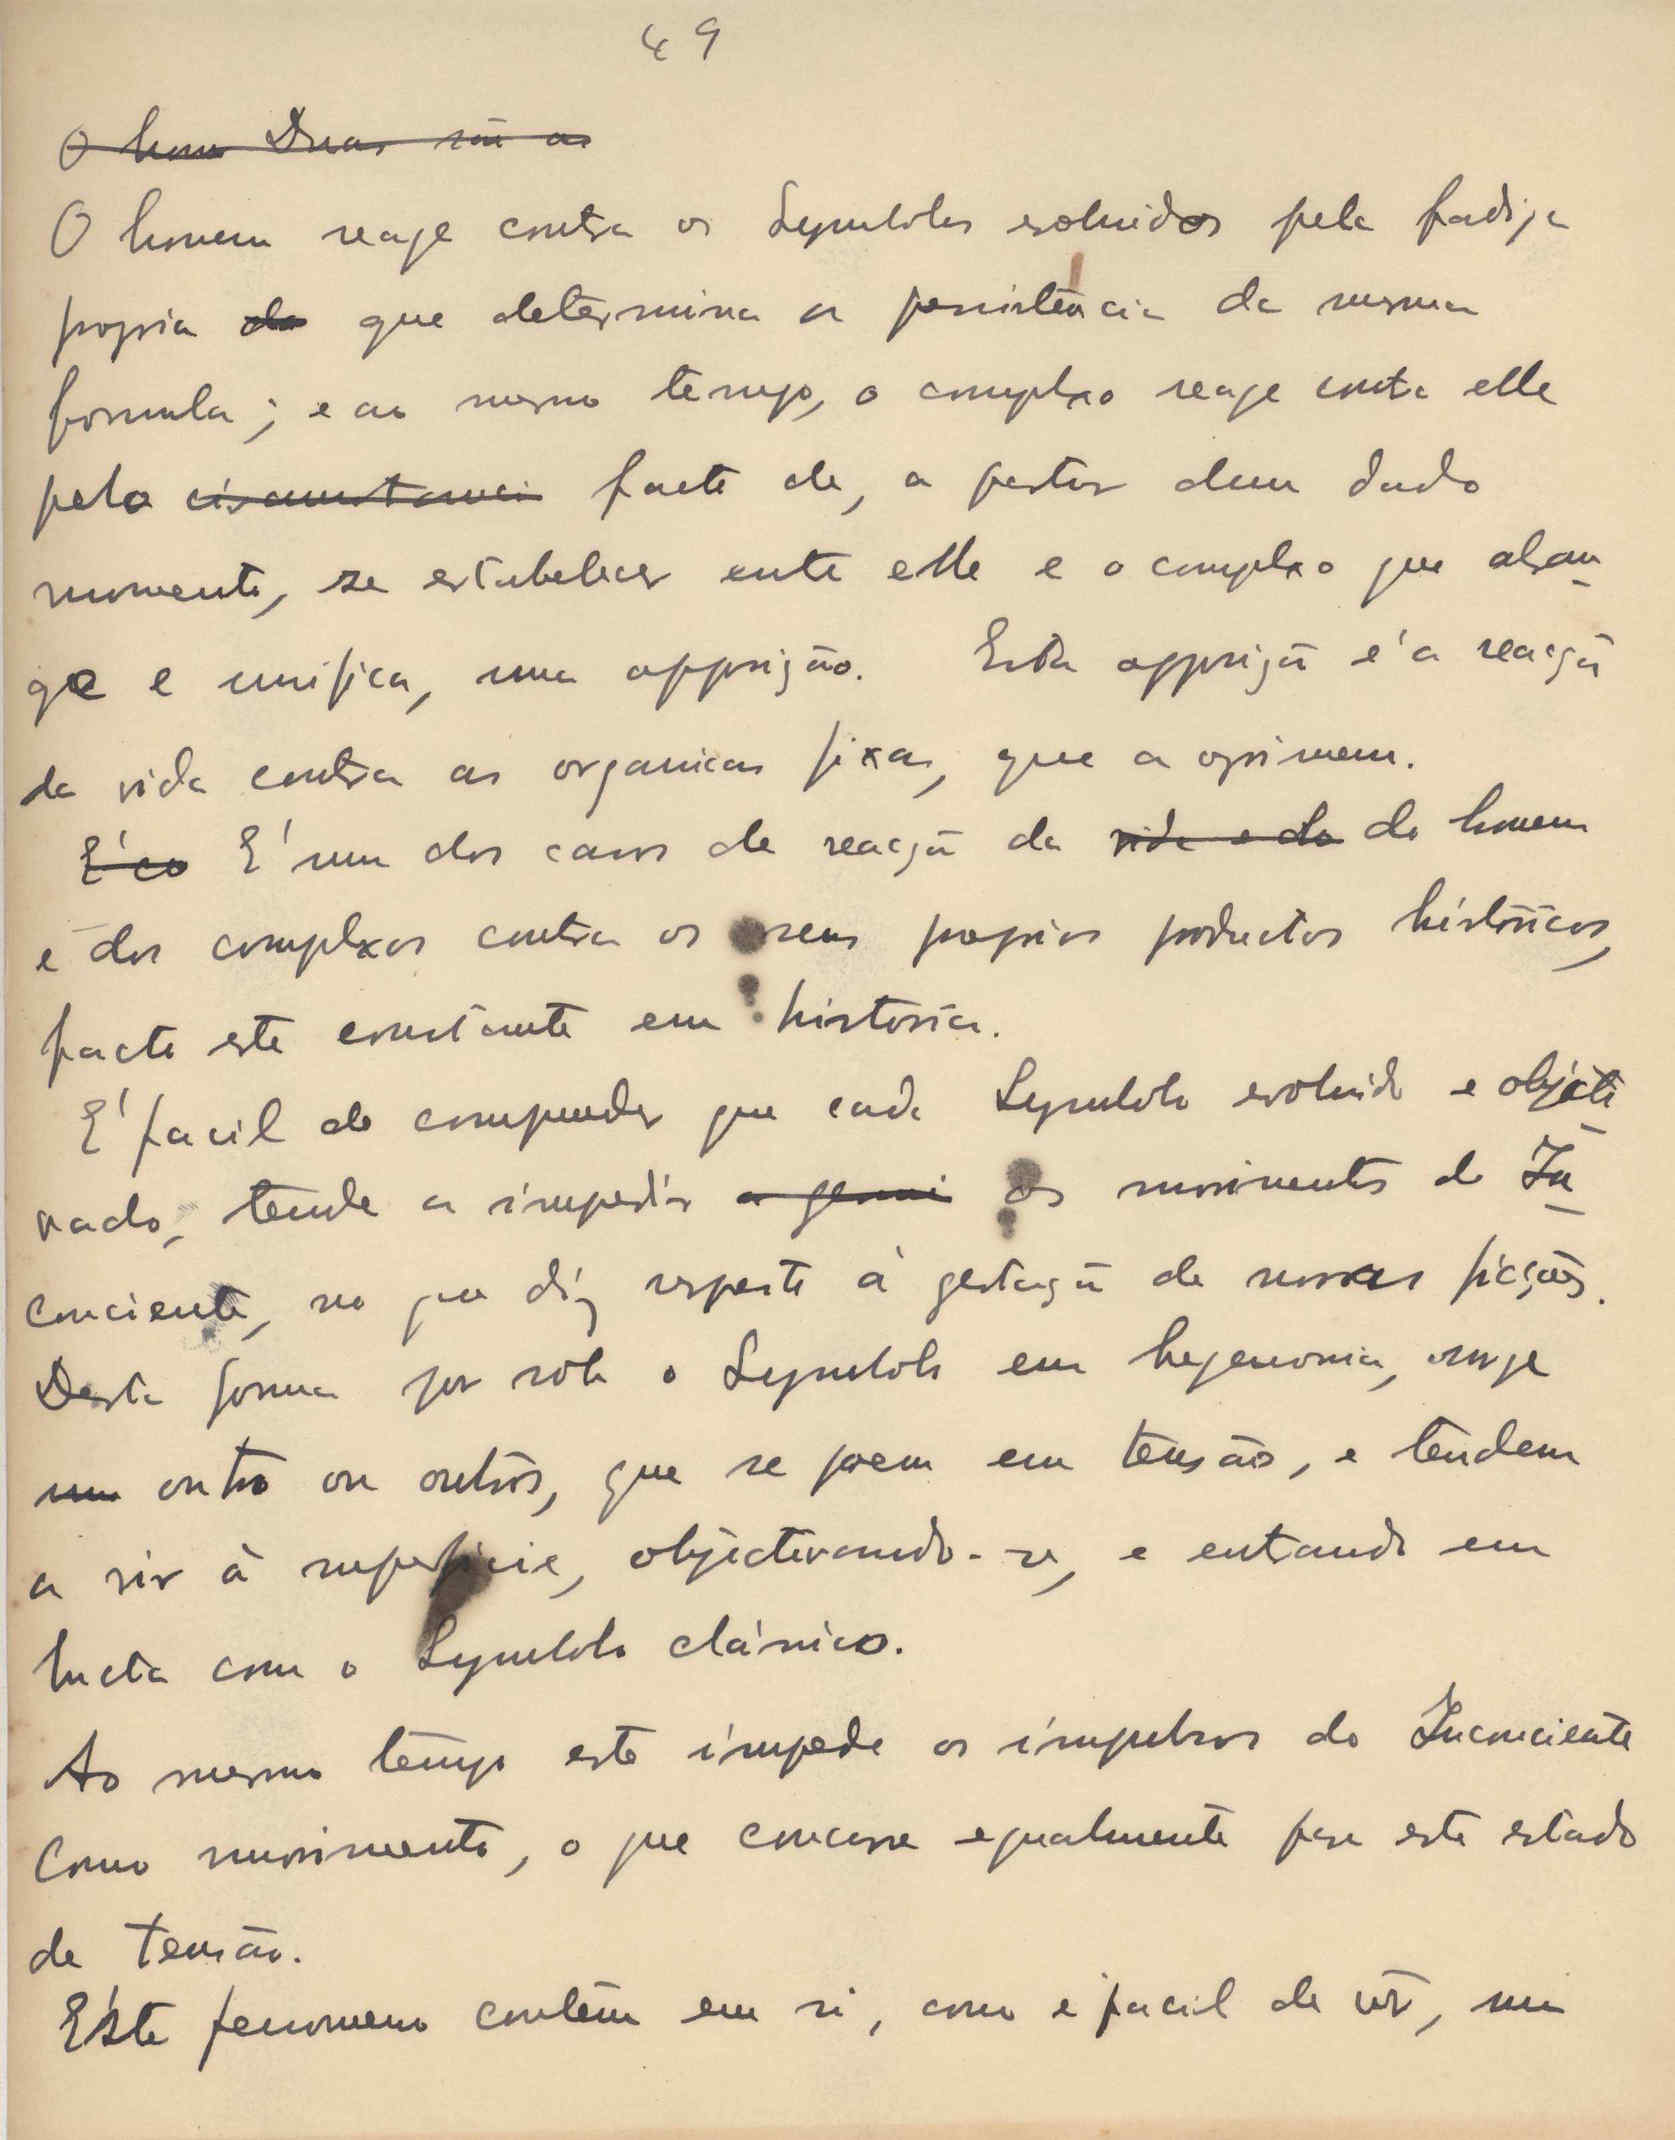 49
O hom Duas são as
O homem reage contra os Symbolos evoluidos pela fadiga
propria do que determina a persistencia da mesma
formula; e ao mesmo tempo, o complexo reage contra elle
pelo circumstanci facto de, a partir dum dado
momento, se estabelecer entre elle e o complexo que abran-
ge e unifica, uma opposição. Esta opposição é a reacção
da vida contra as organicas fixas, que a oprimem.
E' co E' um dos casos de reacção da vida e do do homem
e dos complexos contra os seus proprios productos históricos,
facto este constante em história.
E' facil de comprender que cada Symbolo evoluido e objecti-
vado, tende a impedir a germi os movimentos do In-
conciente, no que diz respeito à gestação de novas ficções.
Desta forma por sob o Symbolo em hegemonia, surge
um outro ou outros, que se poem em tensão, e tendem
a vir à superficie, objectivando-se, e entrando em
lucta com o Symbolo clássico.
Ao mesmo tempo este impede os impulsos do Inconciente
como movimento, o que concorre egualmente para este estado
de tensão.
Éste fenomeno contêm em si, como é facil de vêr, um